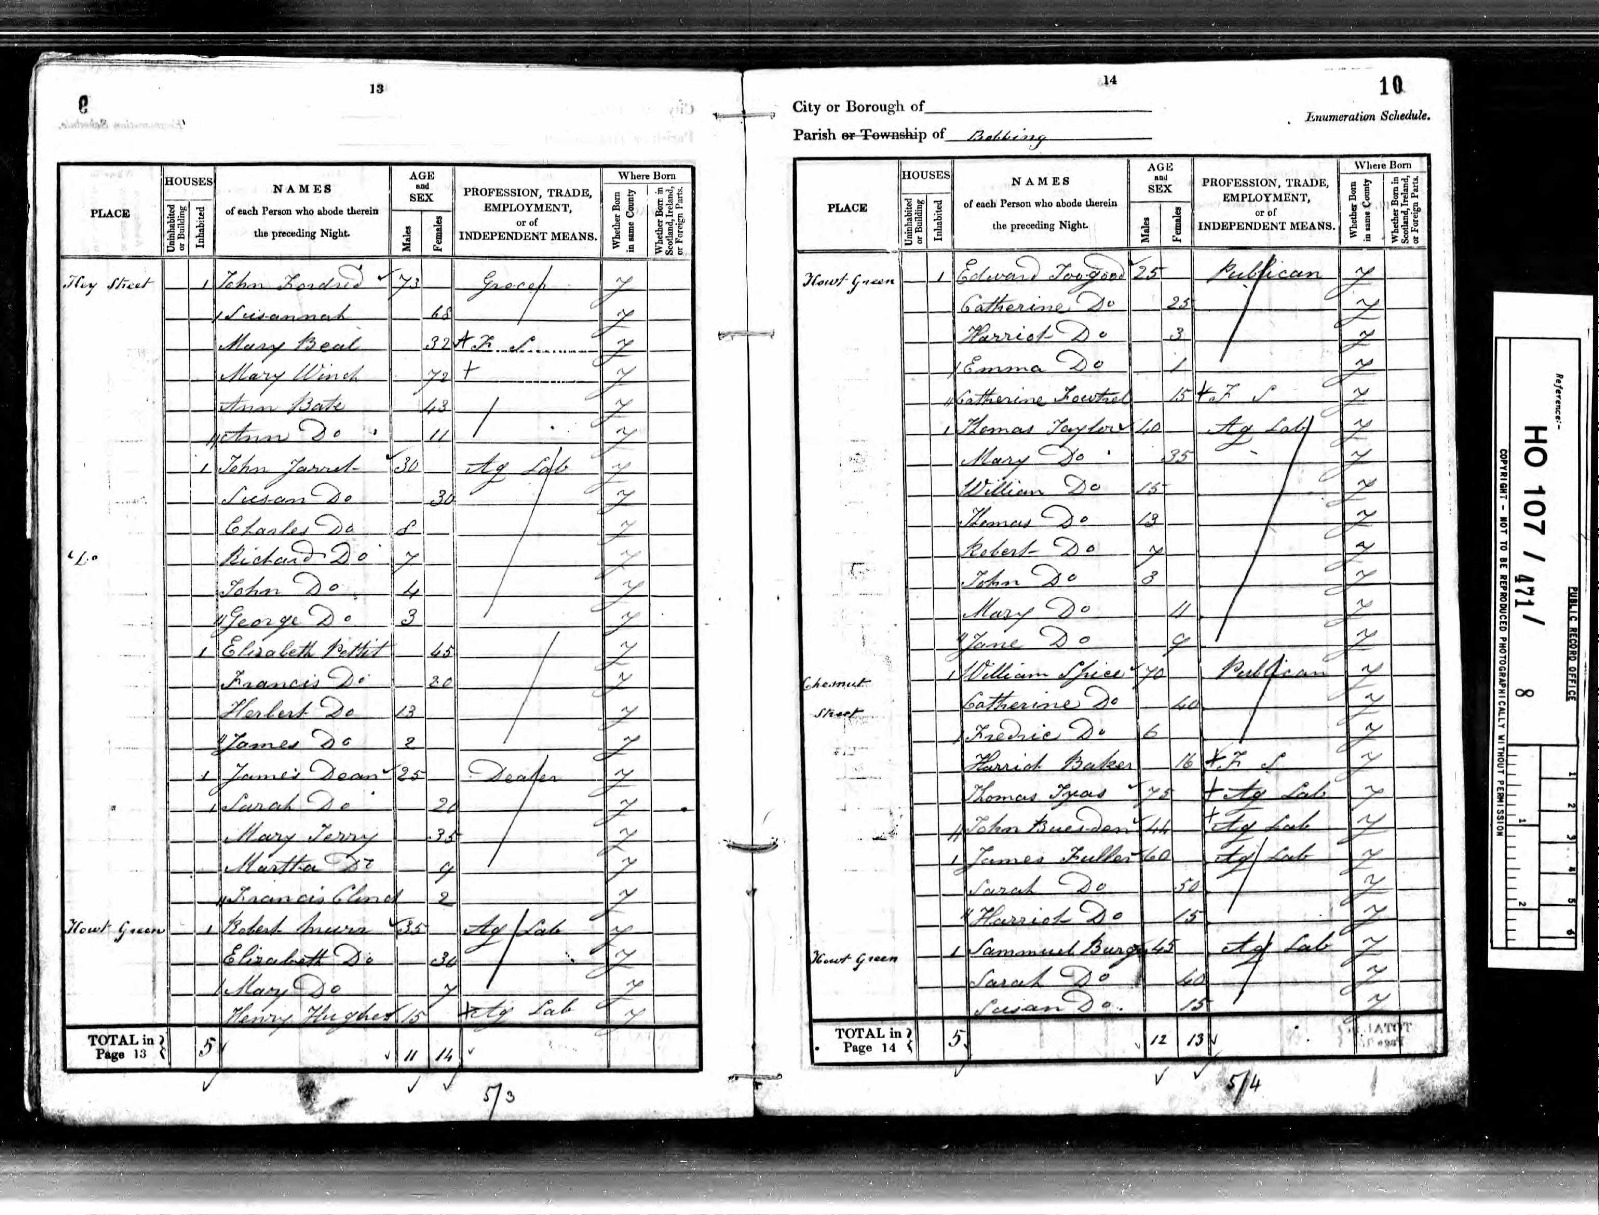 9
13
HOUSES
AGE and SEX
Where Born
PLACE
Uninhabited or Building
Inhabited
NAMES of each Person who abode therein the preceding Night.
Males
Females
PROFESSION, TRADE, EMPLOYMENT, or of INDEPENDENT MEANS.
Whether Born in same County
Whether Born in Scotland, Ireland, or Foreign Parts.
Key Street 1 John Fordred 73 Grocer y
Susannah 68 y
Mary Beal 32 F S y
Mary Winch 72 y
Ann Bate 43 y
Ann Do 11 y
1 John Jarret 30 Ag Lab y
Susan Do 30 y
Charles Do 8 y
Do Richard Do 7 y
John Do 4 y
George Do 3 y
1 Elizabeth Pettit 45 y
Francis Do 20 y
Herbert Do 13 y
James Do 2 y
1 James Dean 25 Dealer y
Sarah Do 20 y
Mary Terry 35 y
Martha Do 9 y
Francis 2 y
Howt Green 1 Robert 35 Ag Lab y
Elizabeth Do 30 y
Mary Do 7 y
Henry Hughes 15 Ag Lab y
TOTAL in Page 13 5 11 14
5/3
14
10
City or Borough of
Enumeration Schedule.
Parish or Township of Bobbing
HOUSES
AGE and SEX
Where Born
PLACE
Uninhabited or Building
Inhabited
NAMES of each Person who abode therein the preceding Night.
Males
Females
PROFESSION, TRADE, EMPLOYMENT, or of INDEPENDENT MEANS.
Whether Born in same County
Whether Born in Scotland, Ireland, or Foreign Parts.
Howt Green 1 Edward Toogood 25 Publican y
Catherine Do 25 y
Harriot Do 3 y
Emma Do 1 y
Catherine 15 F S y
1 Thomas Taylor 40 Ag Lab y
Mary Do 35 y
William Do 15 y
Thomas Do 13 y
Robert Do 7 y
John Do 3 y
Mary Do 11 y
Jane Do 9 y
Chesnut 1 William Spice 70 Publican y
Street Catherine Do 40 y
Fredric Do 6 y
Harriot Baker 16 F S y
Thomas Tyas 75 Ag Lab y
John 44 Ag Lab y
1 James Fuller 60 Ag Lab y
Sarah Do 50 y
Harriot Do 15 y
Howt Green 1 Sammuel 45 Ag Lab y
Sarah Do 40 y
Susan Do 15 y
TOTAL in Page 14 5 12 13
5/4
Reference:-
HO 107 / 471 / 8
PUBLIC RECORD OFFICE
COPYRIGHT - NOT TO BE REPRODUCED PHOTOGRAPHICALLY WITHOUT PERMISSION
1
2
3
4
5
6
1
2